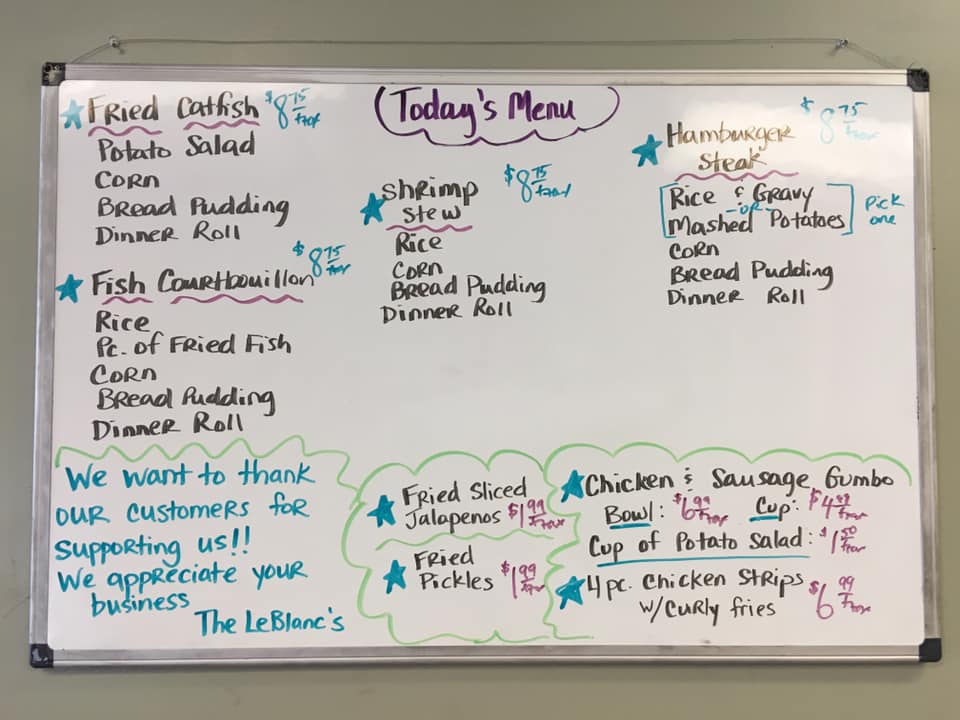 Today's Menu
Fried Catfish $8.75 + tax
Potato Salad
Corn
Bread Pudding
Dinner Roll
Fish Courtbouillon $8.75 + tax
Rice
Pc. of Fried Fish
Corn
Bread Pudding
Dinner Roll
Shrimp $8.75 + tax
Stew
Rice
Corn
Bread Pudding
Dinner Roll
Hamburger $8.75 + tax
Steak
Rice & Gravy
-OR-
Mashed Potatoes
Pick
one
Corn
Bread Pudding
Dinner Roll
We want to thank
our customers for
supporting us!!
We appreciate your
business
The LeBlanc's
Fried Sliced
Jalapenos $1.99 + tax
Fried
Pickles $1.99 + tax
Chicken & Sausage Gumbo
Bowl: $6.99 + tax Cup: $4.49 + tax
Cup of Potato Salad: $1.50 + tax
4 pc. Chicken Strips
w/Curly fries $6.99 + tax